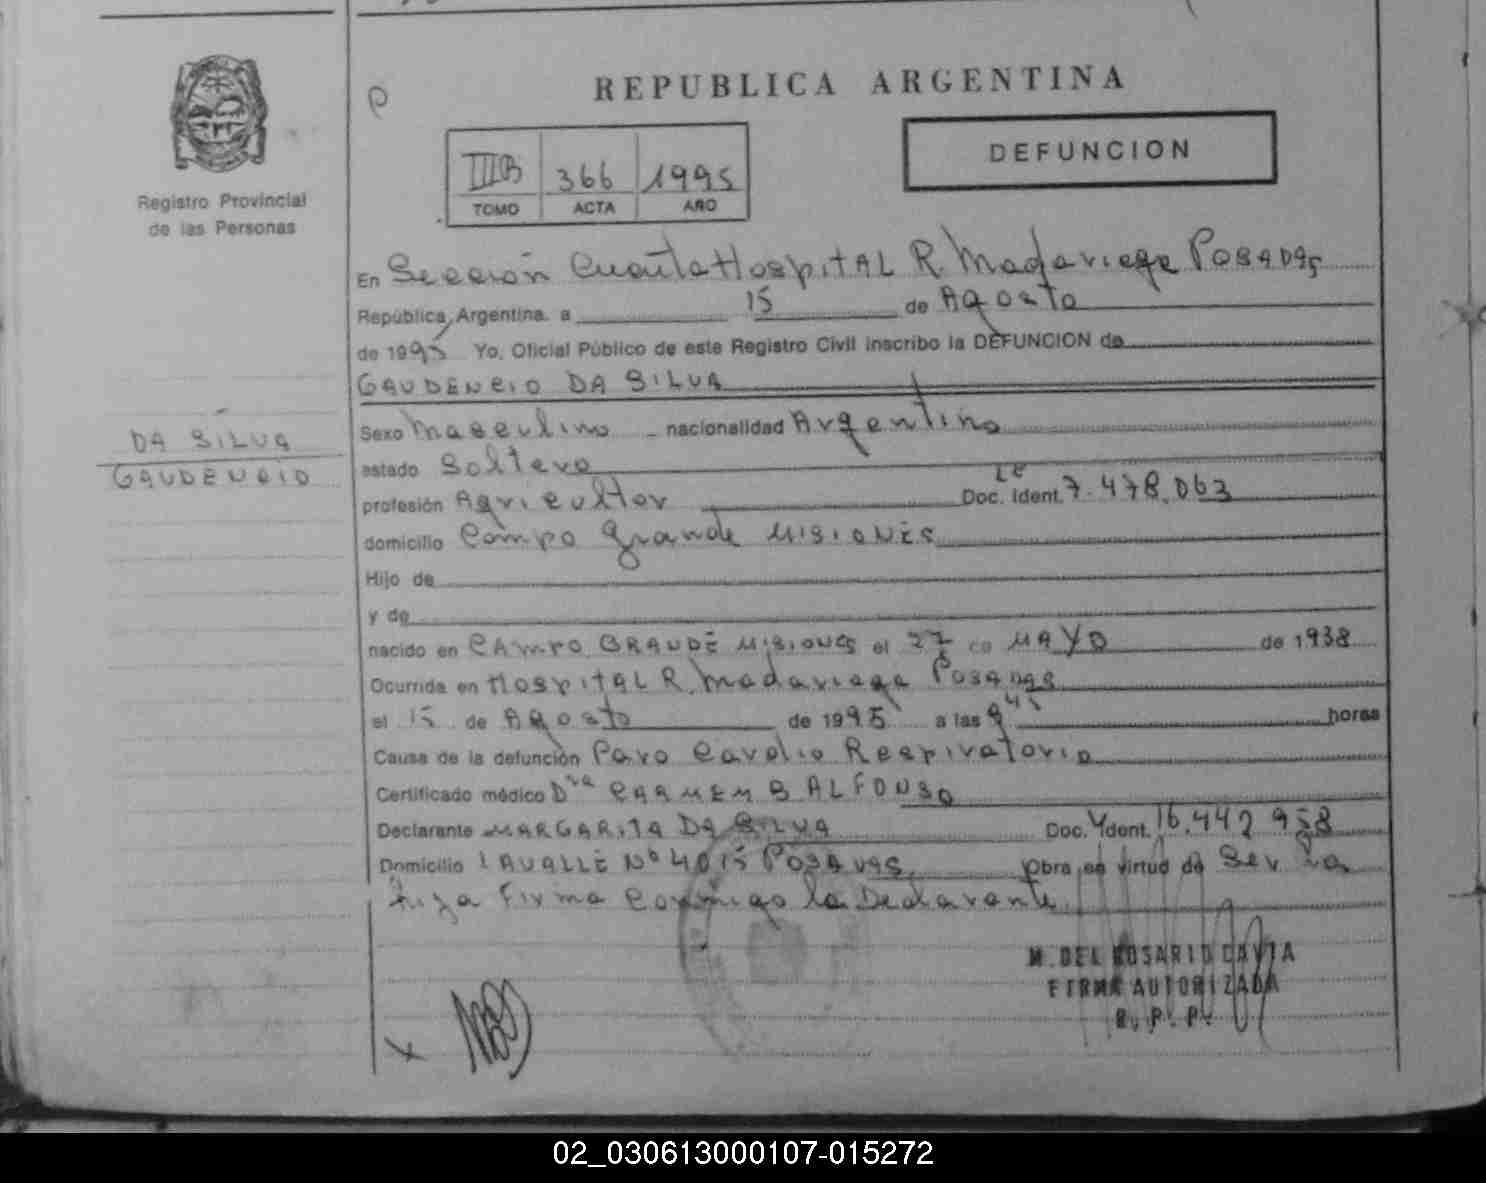 REPUBLICA ARGENTINA
DEFUNCION
IIIB 366 1995
TOMO ACTA AÑO
Registro Provincial
de las Personas
En Sección Cuarta Hospital R. Madariaga Posadas
República Argentina, a 15 de Agosto
de 1995 Yo, Oficial Público de este Registro Civil inscribo la DEFUNCION de
GAUDENCIO DA SILVA
DA SILVA
GAUDENCIO
Sexo Masculino nacionalidad Argentino
estado Soltero
profesión Agricultor Doc. Ident. LE 7.478.063
domicilio Campo Grande MISIONES
Hijo de
y de
nacido en CAMPO GRANDE MISIONES el 27 de MAYO de 1938
Ocurrida en HOSPITAL R. Madariaga Posadas
el 15 de Agosto de 1995 a las 9 45 horas
Causa de la defunción Paro Cardio Respiratorio
Certificado médico Dra CARMEM B ALFONSO
Declarante MARGARITA DA SILVA Doc. Ydent. 16.442.958
Domicilio LAVALLE Nº 4015 POSADAS Obra en virtud de Ser la
hija Firma Conmigo la Declarante
M. DEL ROSARIO CAVIA
FIRMA AUTORIZADA
R. P. P.
X
02_030613000107-015272